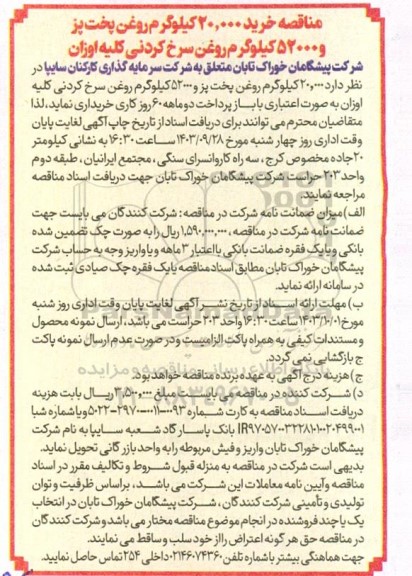 مناقصه خرید ۲۰,۰۰۰ کیلوگرم روغن پخت پز
و ۵۲۰۰۰ کیلوگرم روغن سرخ کردنی کلیه اوزان
شرکت پیشگامان خوراک تابان متعلق به شرکت سرمایه گذاری کارکنان سایپا در
نظر دارد ۲۰,۰۰۰ کیلوگرم روغن پخت پز و ۵۲۰۰۰ کیلوگرم روغن سرخ کردنی کلیه
اوزان به صورت اعتباری با باز پرداخت دو ماهه ۶۰ روز کاری خریداری نماید، لذا
متقاضیان محترم می توانند برای دریافت اسناد از تاریخ چاپ آگهی لغایت پایان
وقت اداری روز چهار شنبه مورخ ۱۴۰۳/۰۹/۲۸ ساعت ۱۶:۳۰ به نشانی کیلومتر
۲۰ جاده مخصوص کرج، سه راه کاروانسرای سنگی، مجتمع ایرانیان، طبقه دوم
واحد ۲۰۳ حراست شرکت پیشگامان خوراک تابان جهت دریافت اسناد مناقصه
مراجعه نمایند.
الف) میزان ضمانت نامه شرکت در مناقصه: شرکت کنندگان می بایست جهت
ضمانت نامه شرکت در مناقصه، ۱,۵۹۰,۰۰۰,۰۰۰ ریال را به صورت چک تضمین شده
بانکی و یا یک فقره ضمانت بانکی با اعتبار ۳ ماهه و یا واریز وجه به حساب شرکت
پیشگامان خوراک تابان مطابق اسناد مناقصه یا یک فقره چک صیادی ثبت شده
در سامانه ارائه نماید.
ب) مهلت ارائه اسناد از تاریخ نشر آگهی لغایت پایان وقت اداری روز شنبه
مورخ ۱۴۰۳/۱۰/۰۱ ساعت ۱۶:۳۰ واحد ۲۰۳ حراست می باشد، ارسال نمونه محصول
و مستندات کیفی به همراه پاکت الزامیست و در صورت عدم ارسال نمونه پاکت
ج بازگشایی نمی گردد.
ج) هزینه درج آگهی به عهده برنده مناقصه خواهد بود.
د) شرکت کننده در مناقصه می بایست مبلغ ۳,۵۰۰,۰۰۰ ریال بابت هزینه
دریافت اسناد مناقصه به کارت شماره ۵۰۲۲-۲۹۷۰-۰۰۱۱-۰۰۹۳ و یا شماره شبا
بانک پاسارگاد شعبه سایپا به نام شرکت
پیشگامان خوراک تابان واریز و فیش مربوطه را به واحد بازرگانی تحویل نماید.
بدیهی است شرکت در مناقصه به منزله قبول شروط و تکالیف مقرر در اسناد
مناقصه و آیین نامه معاملات این شرکت می باشد، براساس ظرفیت و توان
تولیدی و تأمینی شرکت کنندگان، شرکت پیشگامان خوراک تابان در انتخاب
یک یا چند فروشنده در انجام موضوع مناقصه مختار می باشد و شرکت کنندگان
در مناقصه حق هر گونه اعتراض را از خود سلب و ساقط می نمایند.
جهت هماهنگی بیشتر با شماره تلفن ۰۲۱۴۶۰۷۴۳۶۰ داخلی ۲۵۴ تماس حاصل نمایید.